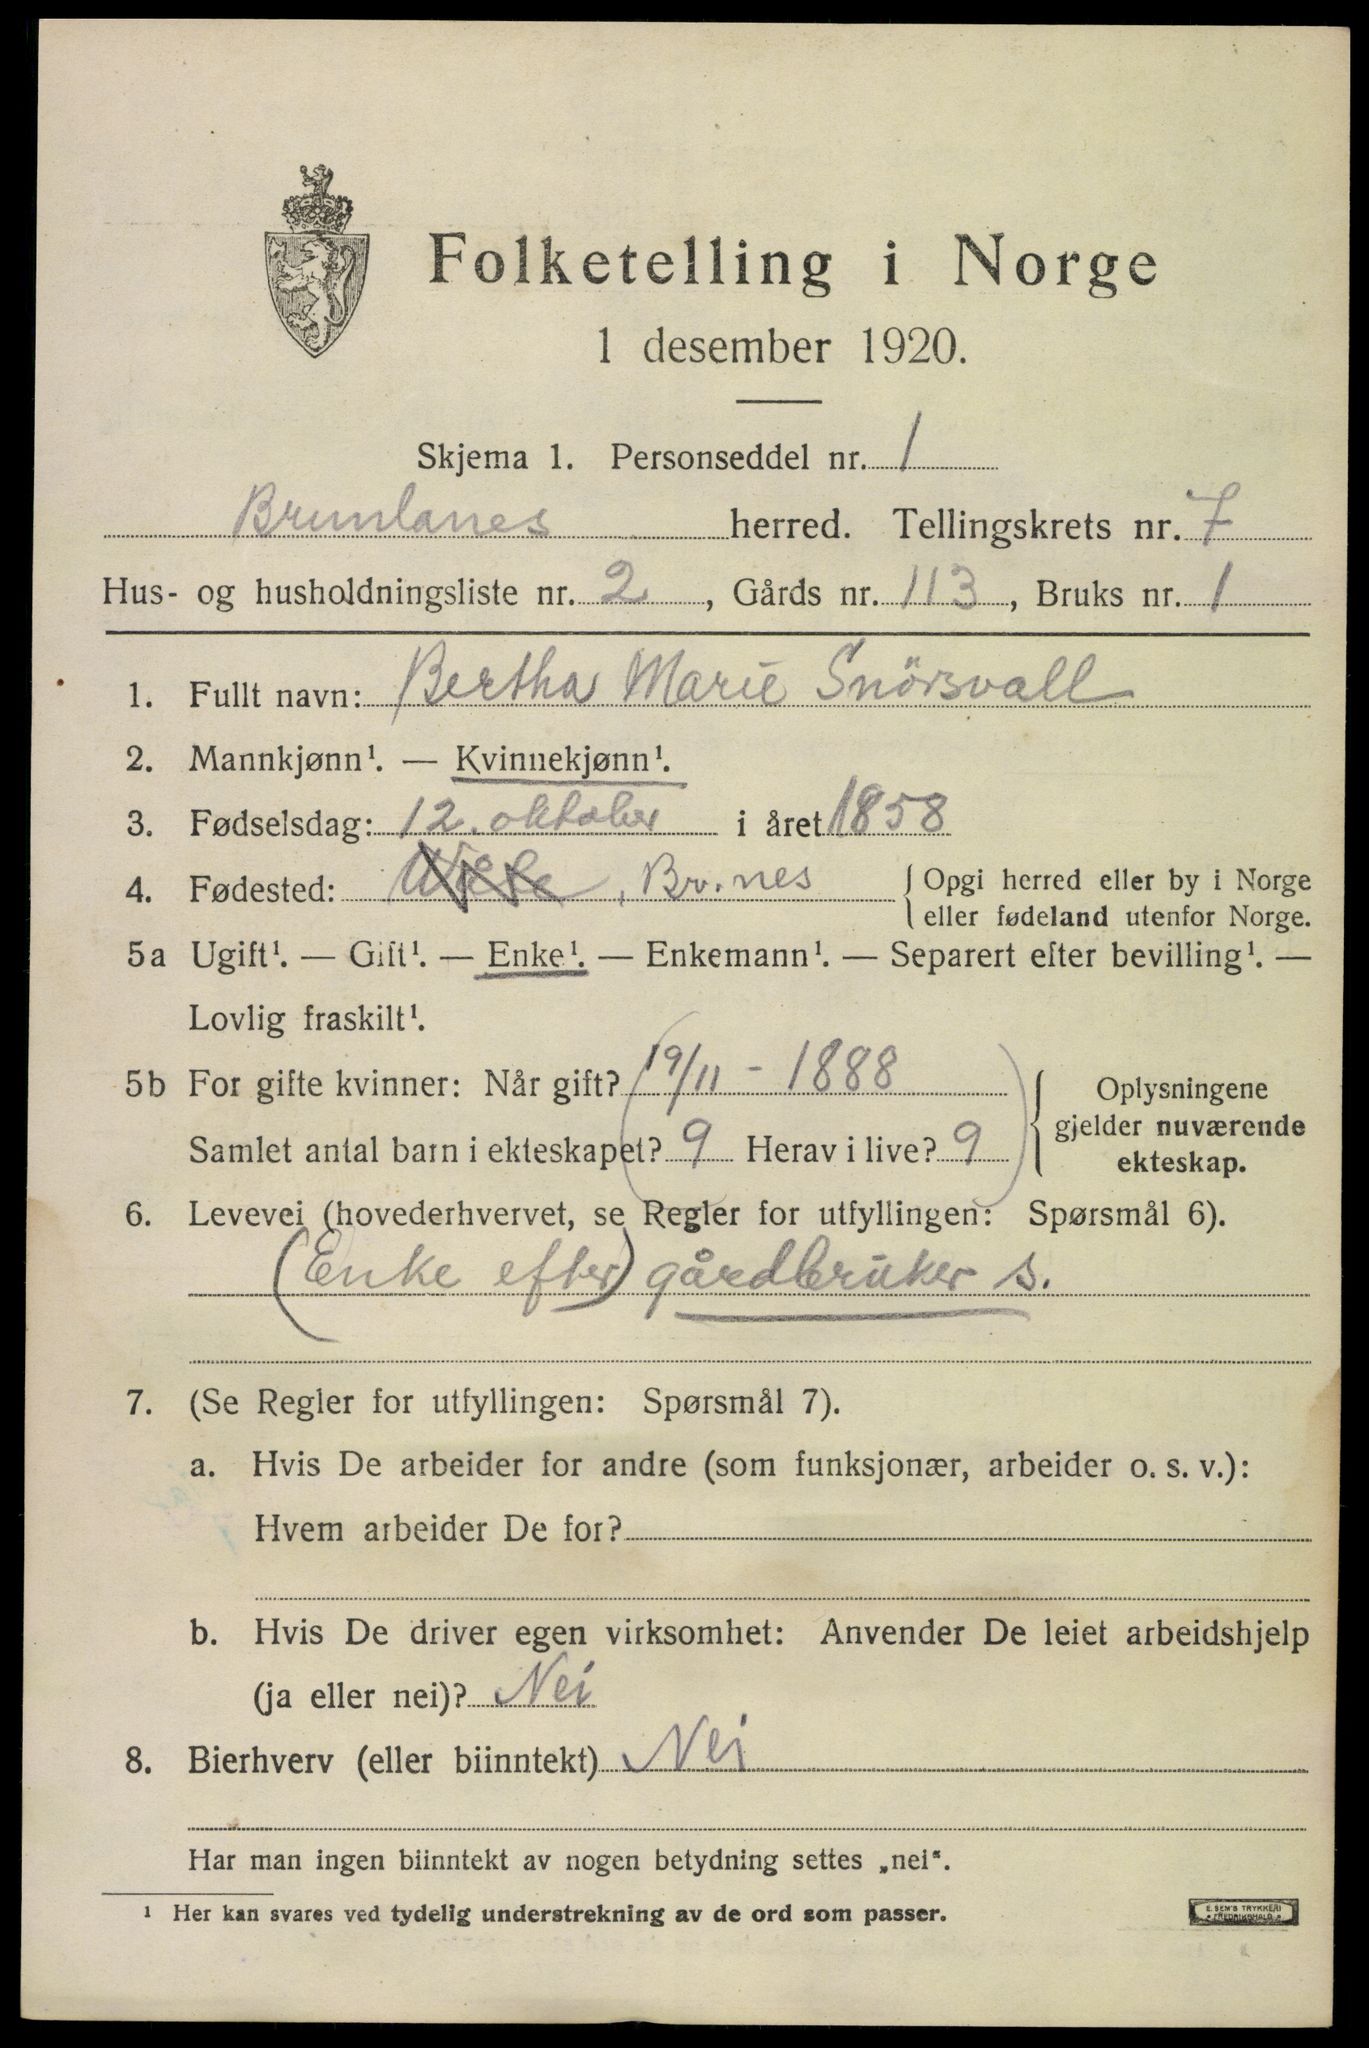 Folketelling i Norge
1 desember 1920.
Skjema 1. Personseddel nr. 1
Brunlanes herred. Tellingskrets nr. 7
Hus- og husholdningsliste nr. 2, Gårds nr. 113, Bruks nr. 1
1. Fullt navn: Bertha Marie Snörsvall
2. Mannkjønn¹. — Kvinnekjønn¹.
3. Fødselsdag: 12. oktober i året 1858
4. Fødested: , Br.nes { Opgi herred eller by i Norge
eller fødeland utenfor Norge.
5a Ugift¹. — Gift¹. — Enke¹. — Enkemann¹. — Separert efter bevilling¹. —
Lovlig fraskilt¹.
5b For gifte kvinner: Når gift? (19/11 - 1888
Samlet antal barn i ekteskapet? 9 Herav i live? 9)
{ Oplysningene
gjelder nuværende
ekteskap.
6. Levevei (hovederhvervet, se Regler for utfyllingen: Spørsmål 6).
(Enke efter) gårdbruker s.
7. (Se Regler for utfyllingen: Spørsmål 7).
a. Hvis De arbeider for andre (som funksjonær, arbeider o. s. v.):
Hvem arbeider De for?
b. Hvis De driver egen virksomhet: Anvender De leiet arbeidshjelp
(ja eller nei)? Nei
8. Bierhverv (eller biinntekt) Nei
Har man ingen biinntekt av nogen betydning settes „nei“.
¹ Her kan svares ved tydelig understrekning av de ord som passer.
E. SEM'S TRYKKERI
FREDRIKSHALD